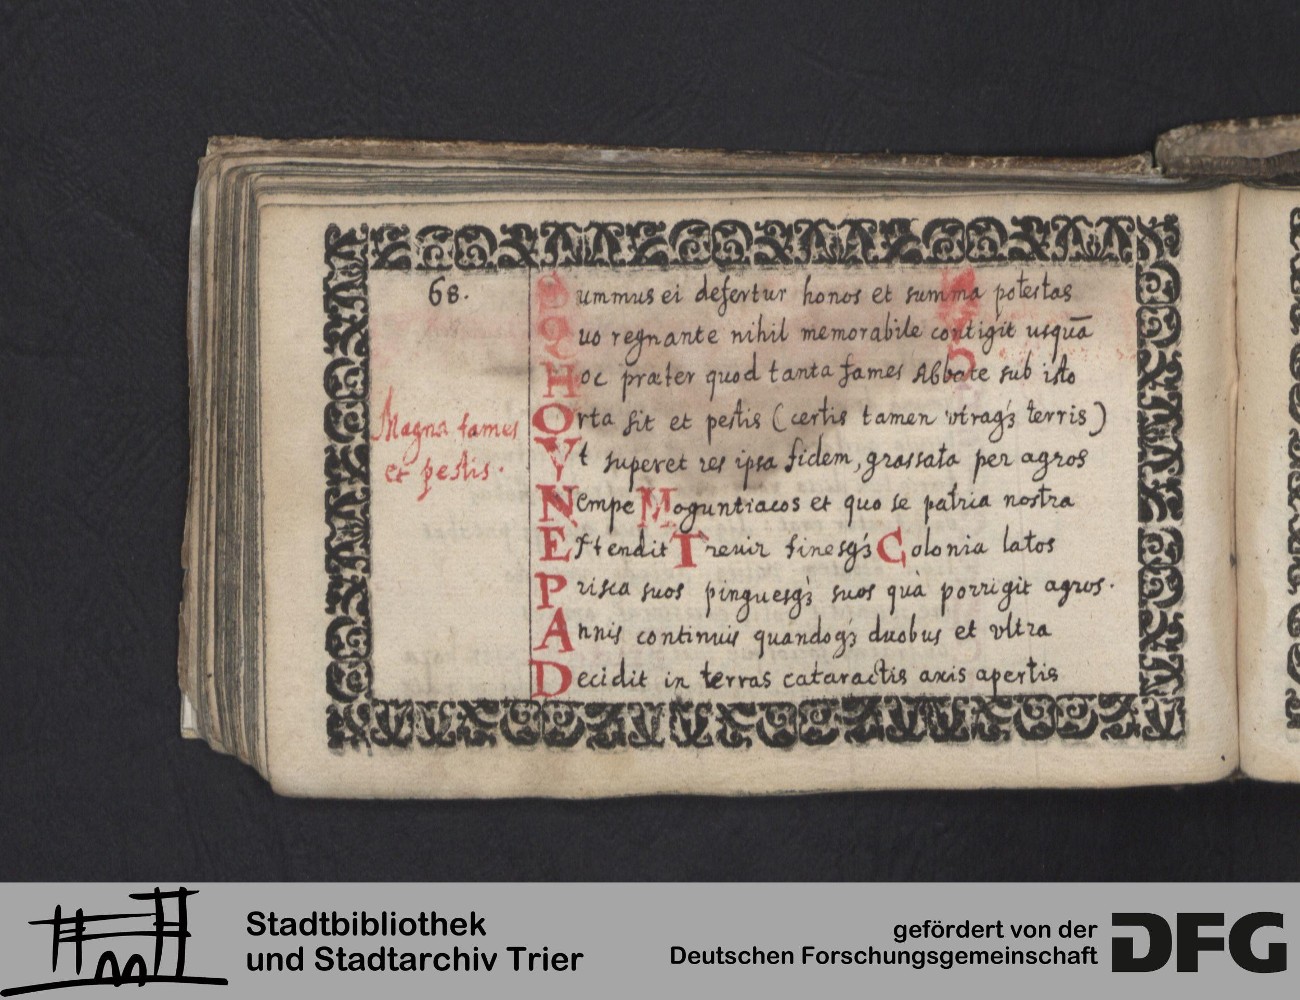 68.
Summus ei defertur honos et summa potestas
Quo regnante nihil memorabile contigit usquā
Hoc præter quod tanta fames Abbate sub isto
Orta sit et pestis (certis tamen vtraqȝ terris)
Vt superet res ipsa fidem, grassata per agros
Magna fames
et pestis.
Nempe Moguntiacos et quo se patria nostra
Extendit Treuir finesqȝ Colonia latos
Prisca suos pinguesqȝ suos quà porrigit agros.
Annis continuis quandoqȝ duobus et vltra
Decidit in terras cataractis axis apertis
Stadtbibliothek
und Stadtarchiv Trier
gefördert von der
Deutschen Forschungsgemeinschaft
DFG